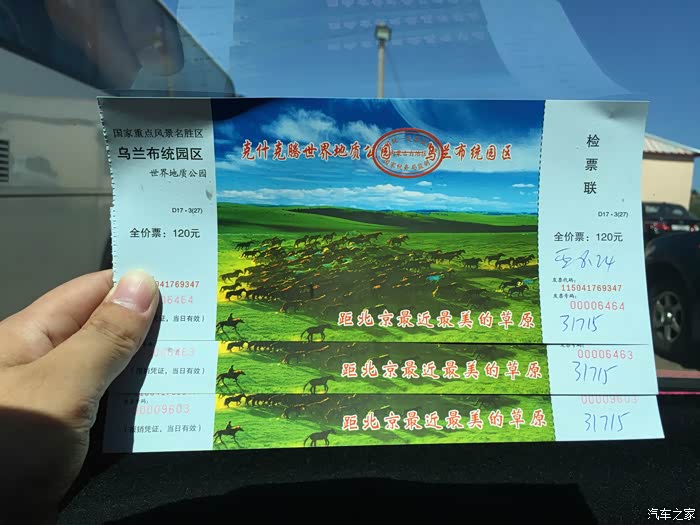 国家重点风景名胜区
乌兰布统园区
世界地质公园
D17·3(27)
全价票：120元
41769347
6464
证，当日有效）
克什克腾世界地质公园 乌兰布统园区
距北京最近最美的草原
检票联
D17·3(27)
全价票：120元
8.24
发票代码：
115041769347
发票号码：
00006464
31715
6463
凭证，当日有效）
距北京最近最美的草原
00006463
31715
00009603
销凭证，当日有效）
距北京最近最美的草原
00009603
31715
汽车之家